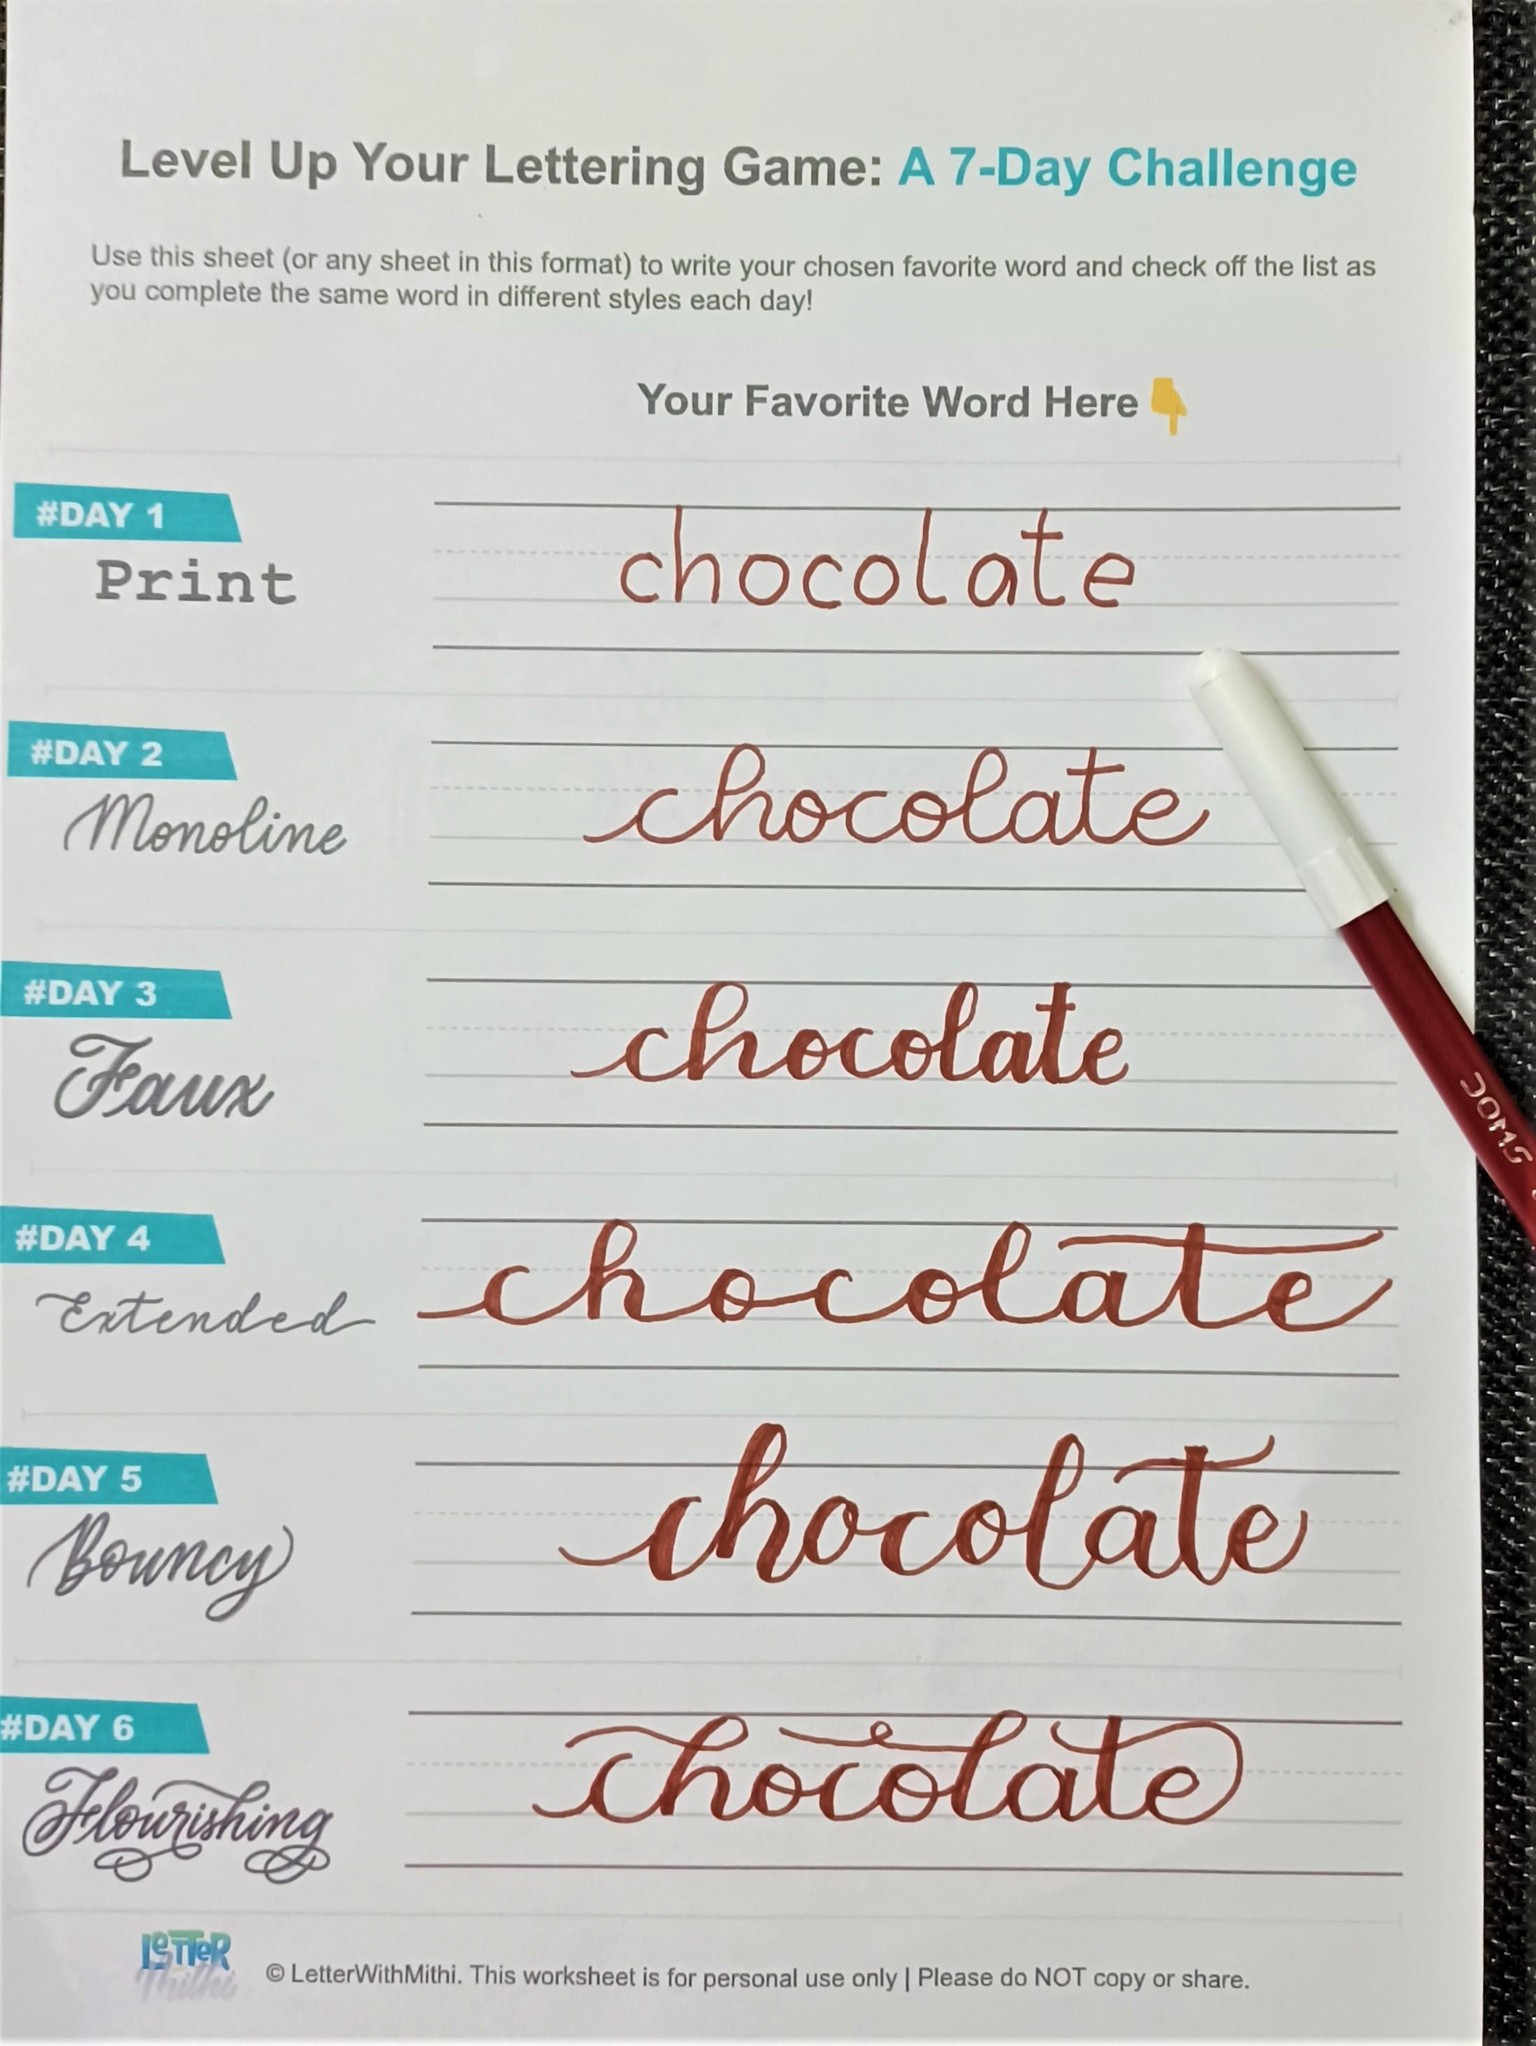 Level Up Your Lettering Game: A 7-Day Challenge
Use this sheet (or any sheet in this format) to write your chosen favorite word and check off the list as
you complete the same word in different styles each day!
Your Favorite Word Here 👇
#DAY 1
Print
chocolate
#DAY 2
Monoline
chocolate
#DAY 3
Faux
chocolate
DOMS
#DAY 4
Extended
chocolate
#DAY 5
Bouncy
chocolate
#DAY 6
Flourishing
chocolate
LeTTeR
Mithi
© LetterWithMithi. This worksheet is for personal use only | Please do NOT copy or share.